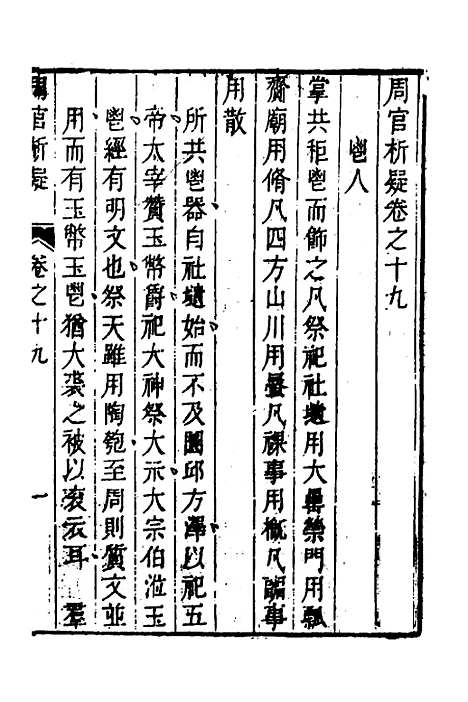 周官析疑卷之十九
鬯人
掌共秬鬯而飾之凡祭祀社壝用大罍禜門用瓢
齋廟用脩凡四方山川用蜃凡祼事用概凡疈事
用散
所共鬯器自社壝始而不及圜邱方澤以祀五
帝太宰贊玉幣爵祀大神祭大示大宗伯涖玉
鬯經有明文也祭天雖用陶匏至周則質文並
用而有玉幣玉鬯猶大裘之被以衮云耳 羣
周官析疑
卷之十九
一